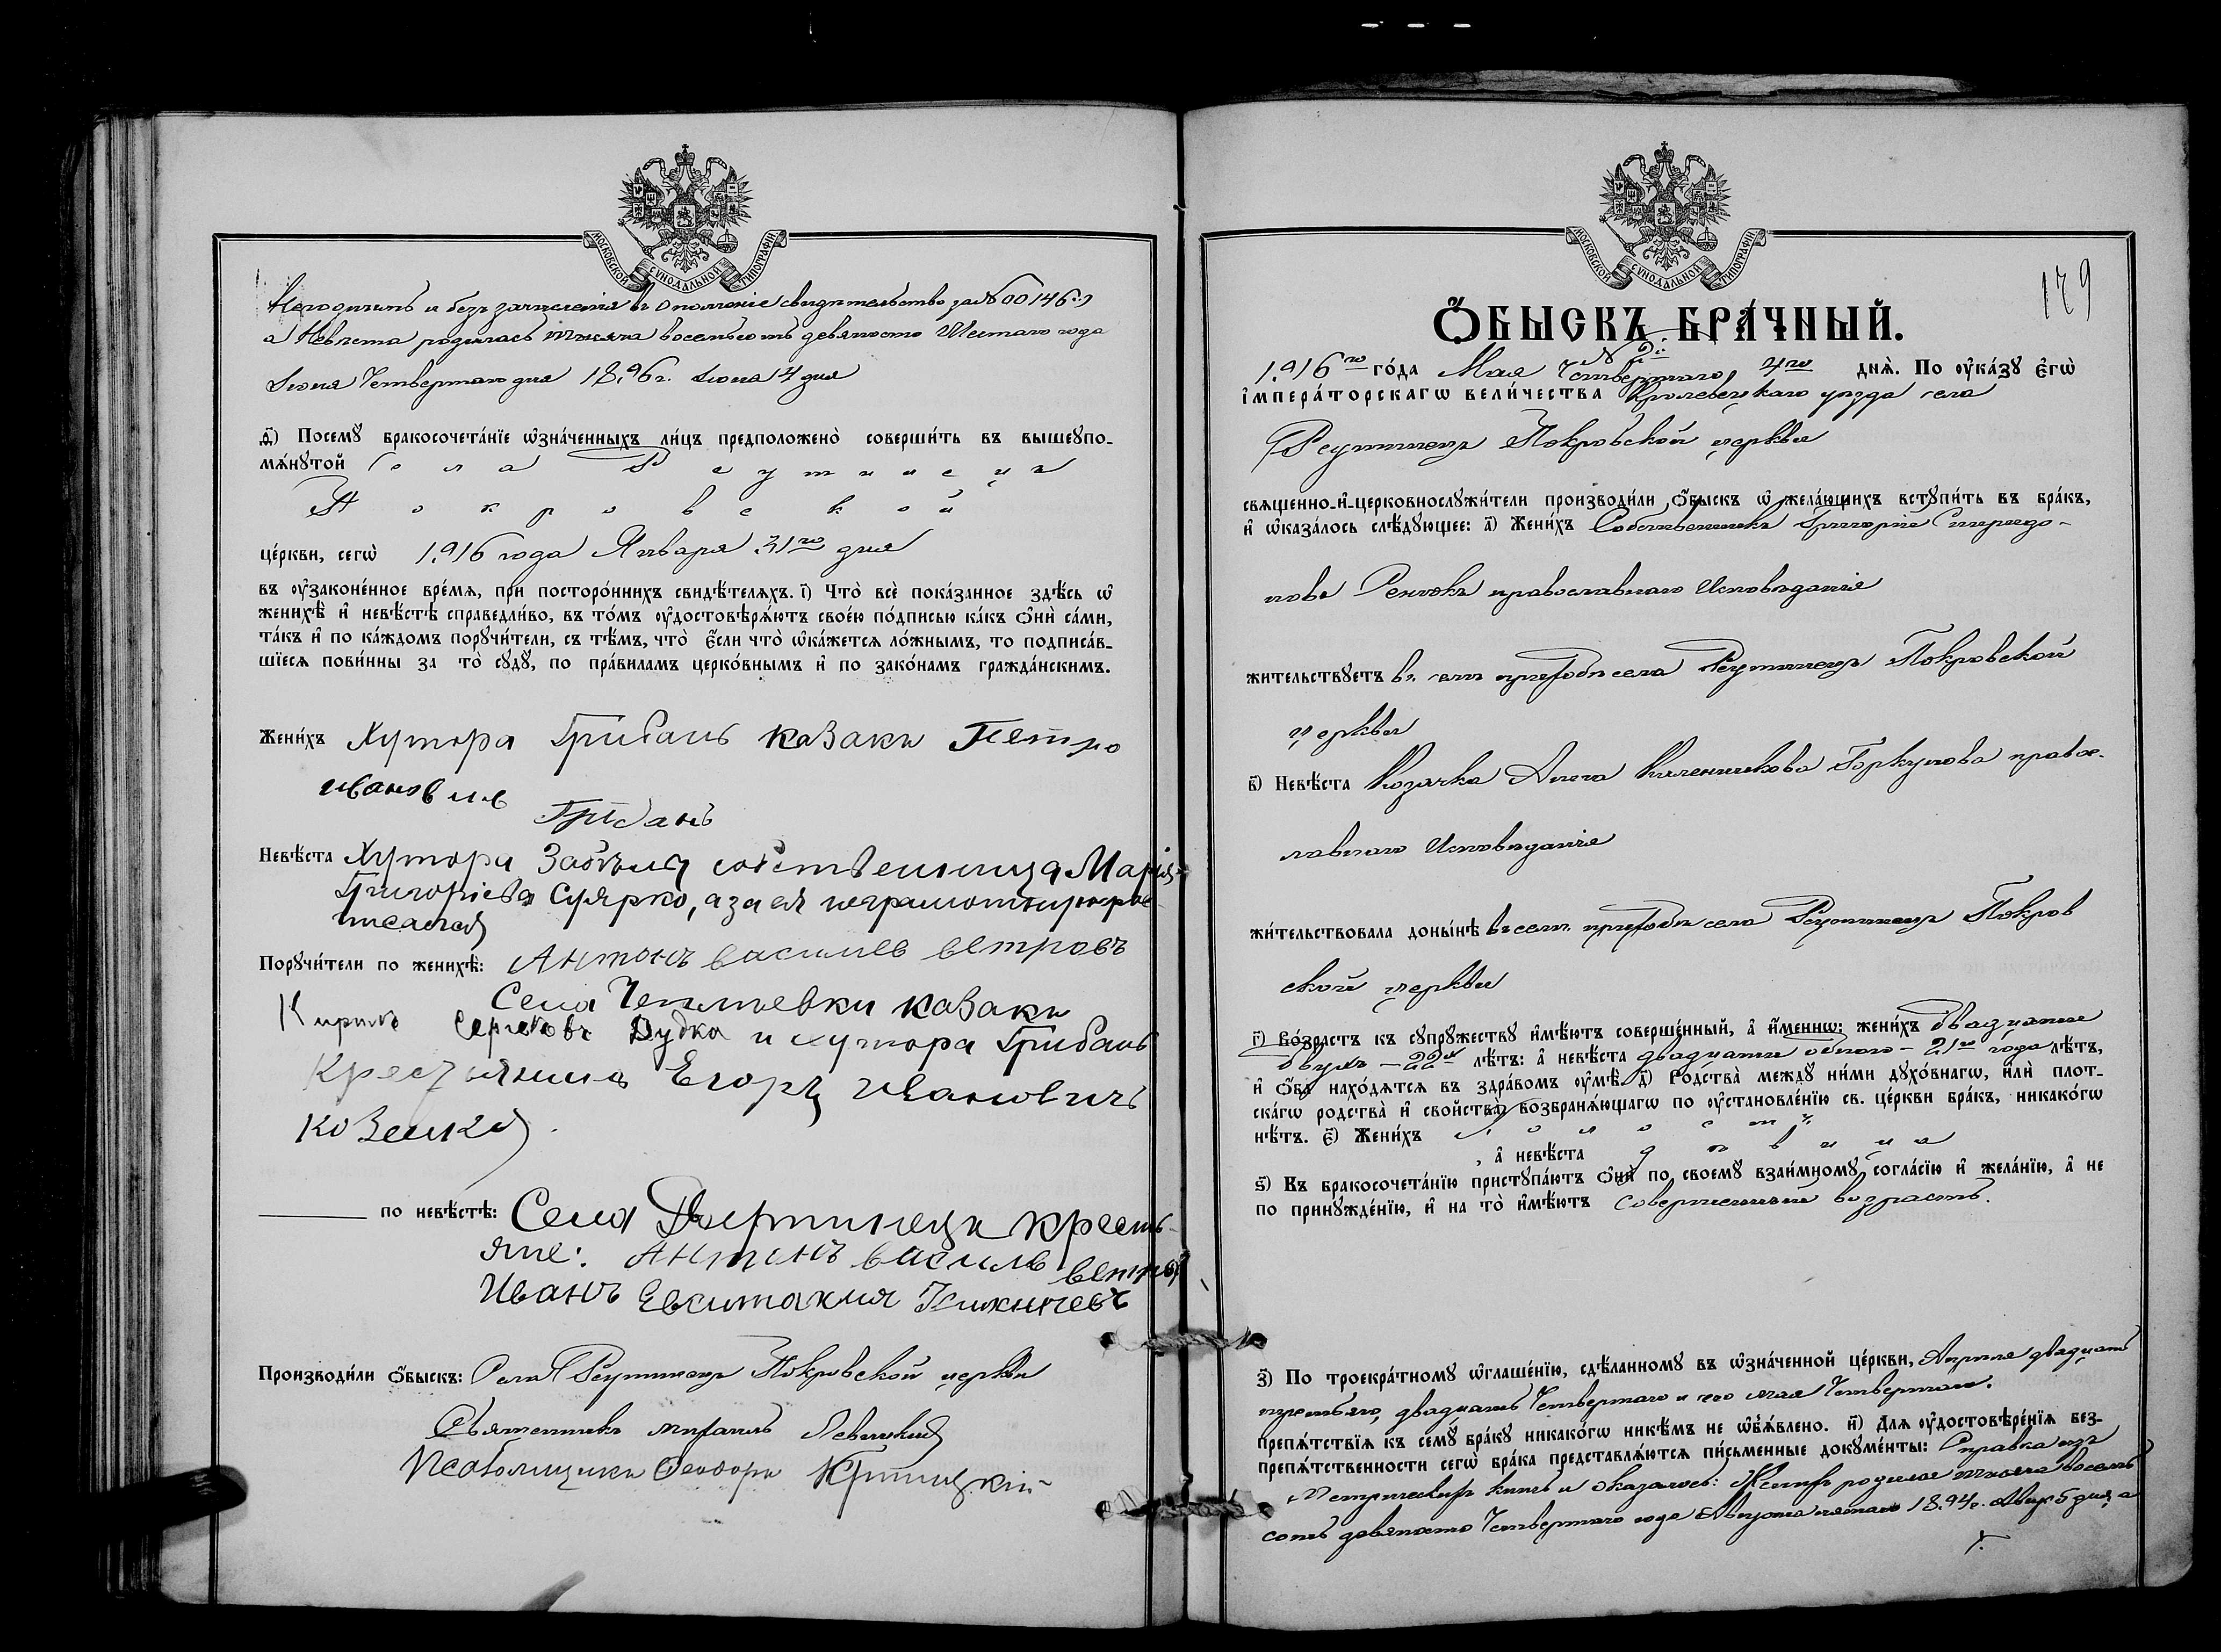 МОСКОВСКОЙ СУНОДАЛЬНОЙ ТИПОГРАФІИ
Негоднымъ и безъ зачисленія въ ополченіе свидѣтельство за № 00146.
а Невѣста родилась тысяча восемьсотъ девяносто Шестаго года
Четвертаго дня 1896 г. 4 дня
д҃) Посемꙋ̀ бракосочета́нїе ѡ҆зна́ченныхъ ли́цъ предположено̀ соверши́ть въ вышеꙋпо-
мѧ́нꙋтой села Реутинецъ
Покровской
це́ркви, сегѡ̀ 1916 года Января 31го дня
въ ᲂу҆законе́нное вре́мѧ, при посторо́ннихъ свидѣ́телѧхъ. і҃) Что̀ всѐ пока́занное здѣ́сь ѡ҆
женихѣ̀ и҆ невѣ́стѣ справедли́во, въ то́мъ ᲂу҆достовѣрѧ́ютъ свое́ю по́дписью ка́къ ѻ҆нѝ са́ми,
та́къ и҆ по ка́ждомъ порꙋчи́тели, съ тѣ́мъ, что̀ є҆́сли что̀ ѡ҆ка́жетсѧ ло́жнымъ, то подписа́в-
шїесѧ пови́нны за то̀ сꙋдꙋ̀, по пра́виламъ церко́внымъ и҆ по зако́намъ гражда́нскимъ.
Жени́хъ Хутора Грибань казакъ Петро
Ивановичъ
Грибань
Невѣ́ста Хутора собственница Марія
Григоріева Сурярко, а за ея неграмотную рос-
писался
Порꙋчи́тели по женихѣ̀: Антонъ Василиев Ветровъ
Села Чепліевки казакъ
Кирилъ Сергѣевъ Дудка и хутора Грибань
Крестьянинъ Егоръ Ивановичъ
по невѣ́стѣ: Села крестъ-
яне: Антонъ Василив
Иванъ
Производи́ли ѻ҆́быскъ: Села Реутинецъ Покровской церкви
Священникъ Михаилъ Левицкій
Псаломщикъ Ѳеодоръ Критицкій
МОСКОВСКОЙ СУНОДАЛЬНОЙ ТИПОГРАФІИ
179
Ѻ҆́БЫСКЪ БРА́ЧНЫЙ.
1916го го́да Мая Четвертаго, 4го днѧ̀. По ᲂу҆ка́зꙋ Є҆гѡ̀
і҆мпера́торскагѡ вели́чества Кролевецкаго уѣзда села
Реутинецъ Покровской церкви
свѧщенно-и҆-церковнослꙋжи́тели производи́ли ѻ҆́быскъ ѡ҆ жела́ющихъ встꙋпи́ть въ бра́къ,
и҆ ѡ҆каза́лось слѣ́дꙋющее: а҃) Жени́хъ Собственникъ Григорій Спиридо-
новъ Ренюкъ православнаго Исповѣданія
жительствꙋетъ въ селѣ приходѣ села Реутинецъ Покровской
церкви
в҃) Невѣ́ста Козачка Анна Калениковна Горкунова правос-
лавнаго Исповѣданія
жи́тельствовала доны́нѣ въ селѣ приходѣ села Реутинецъ Покров
ской церкви
г҃) Во́зрастъ къ сꙋпрꙋ́жествꙋ и҆мѣ́ютъ соверше́нный, а҆ и҆́меннѡ: жени́хъ двадцати
двухъ - 22х лѣ́тъ: а҆ невѣ́ста двадцати одного - 21го года лѣ́тъ,
и҆ ѻ҆́ба нахо́дѧтсѧ въ здра́вомъ ᲂу҆мѣ̀. д҃) Ро́дства̀ междꙋ ни́ми дꙋхо́внагѡ, и҆лѝ плот-
ска́гѡ родства̀ и҆ свойства̀, возбранѧ́ющагѡ по ᲂу҆становле́нїю св. це́ркви бра́къ, никако́гѡ
нѣ́тъ. є҃) Жени́хъ холостъ
, а҆ невѣ́ста дѣвица
ѕ҃) Къ бракосочета́нїю пристꙋпа́ютъ ѻ҆нѝ по своемꙋ̀ взаи́мномꙋ согла́сїю и҆ жела́нїю, а҆ не
по принꙋжде́нїю, и҆ на то̀ и҆мѣ́ютъ совершенный возрастъ.
з҃) По троекра́тномꙋ ѡ҆глаше́нїю, сдѣ́ланномꙋ въ ѡ҆зна́ченной це́ркви, Апрѣля двадцать
третьяго, двадцать Четвертаго и сего мая Четвертаго.
препѧ́тствїѧ къ семꙋ̀ бра́кꙋ никако́гѡ никѣ́мъ не ѡ҆б̾ѧ́влено. и҃) Длѧ ᲂу҆достовѣре́нїѧ без-
препѧ́тственности сегѡ̀ бра́ка представлѧ́ютсѧ пи́сьменные докꙋме́нты: Справка изъ
Метрическихъ книгъ и оказалось: Женихъ родился тысяча восемь
сотъ девяносто Четвертаго года Августа пятаго 1894 г. Авг. 5 дня, а